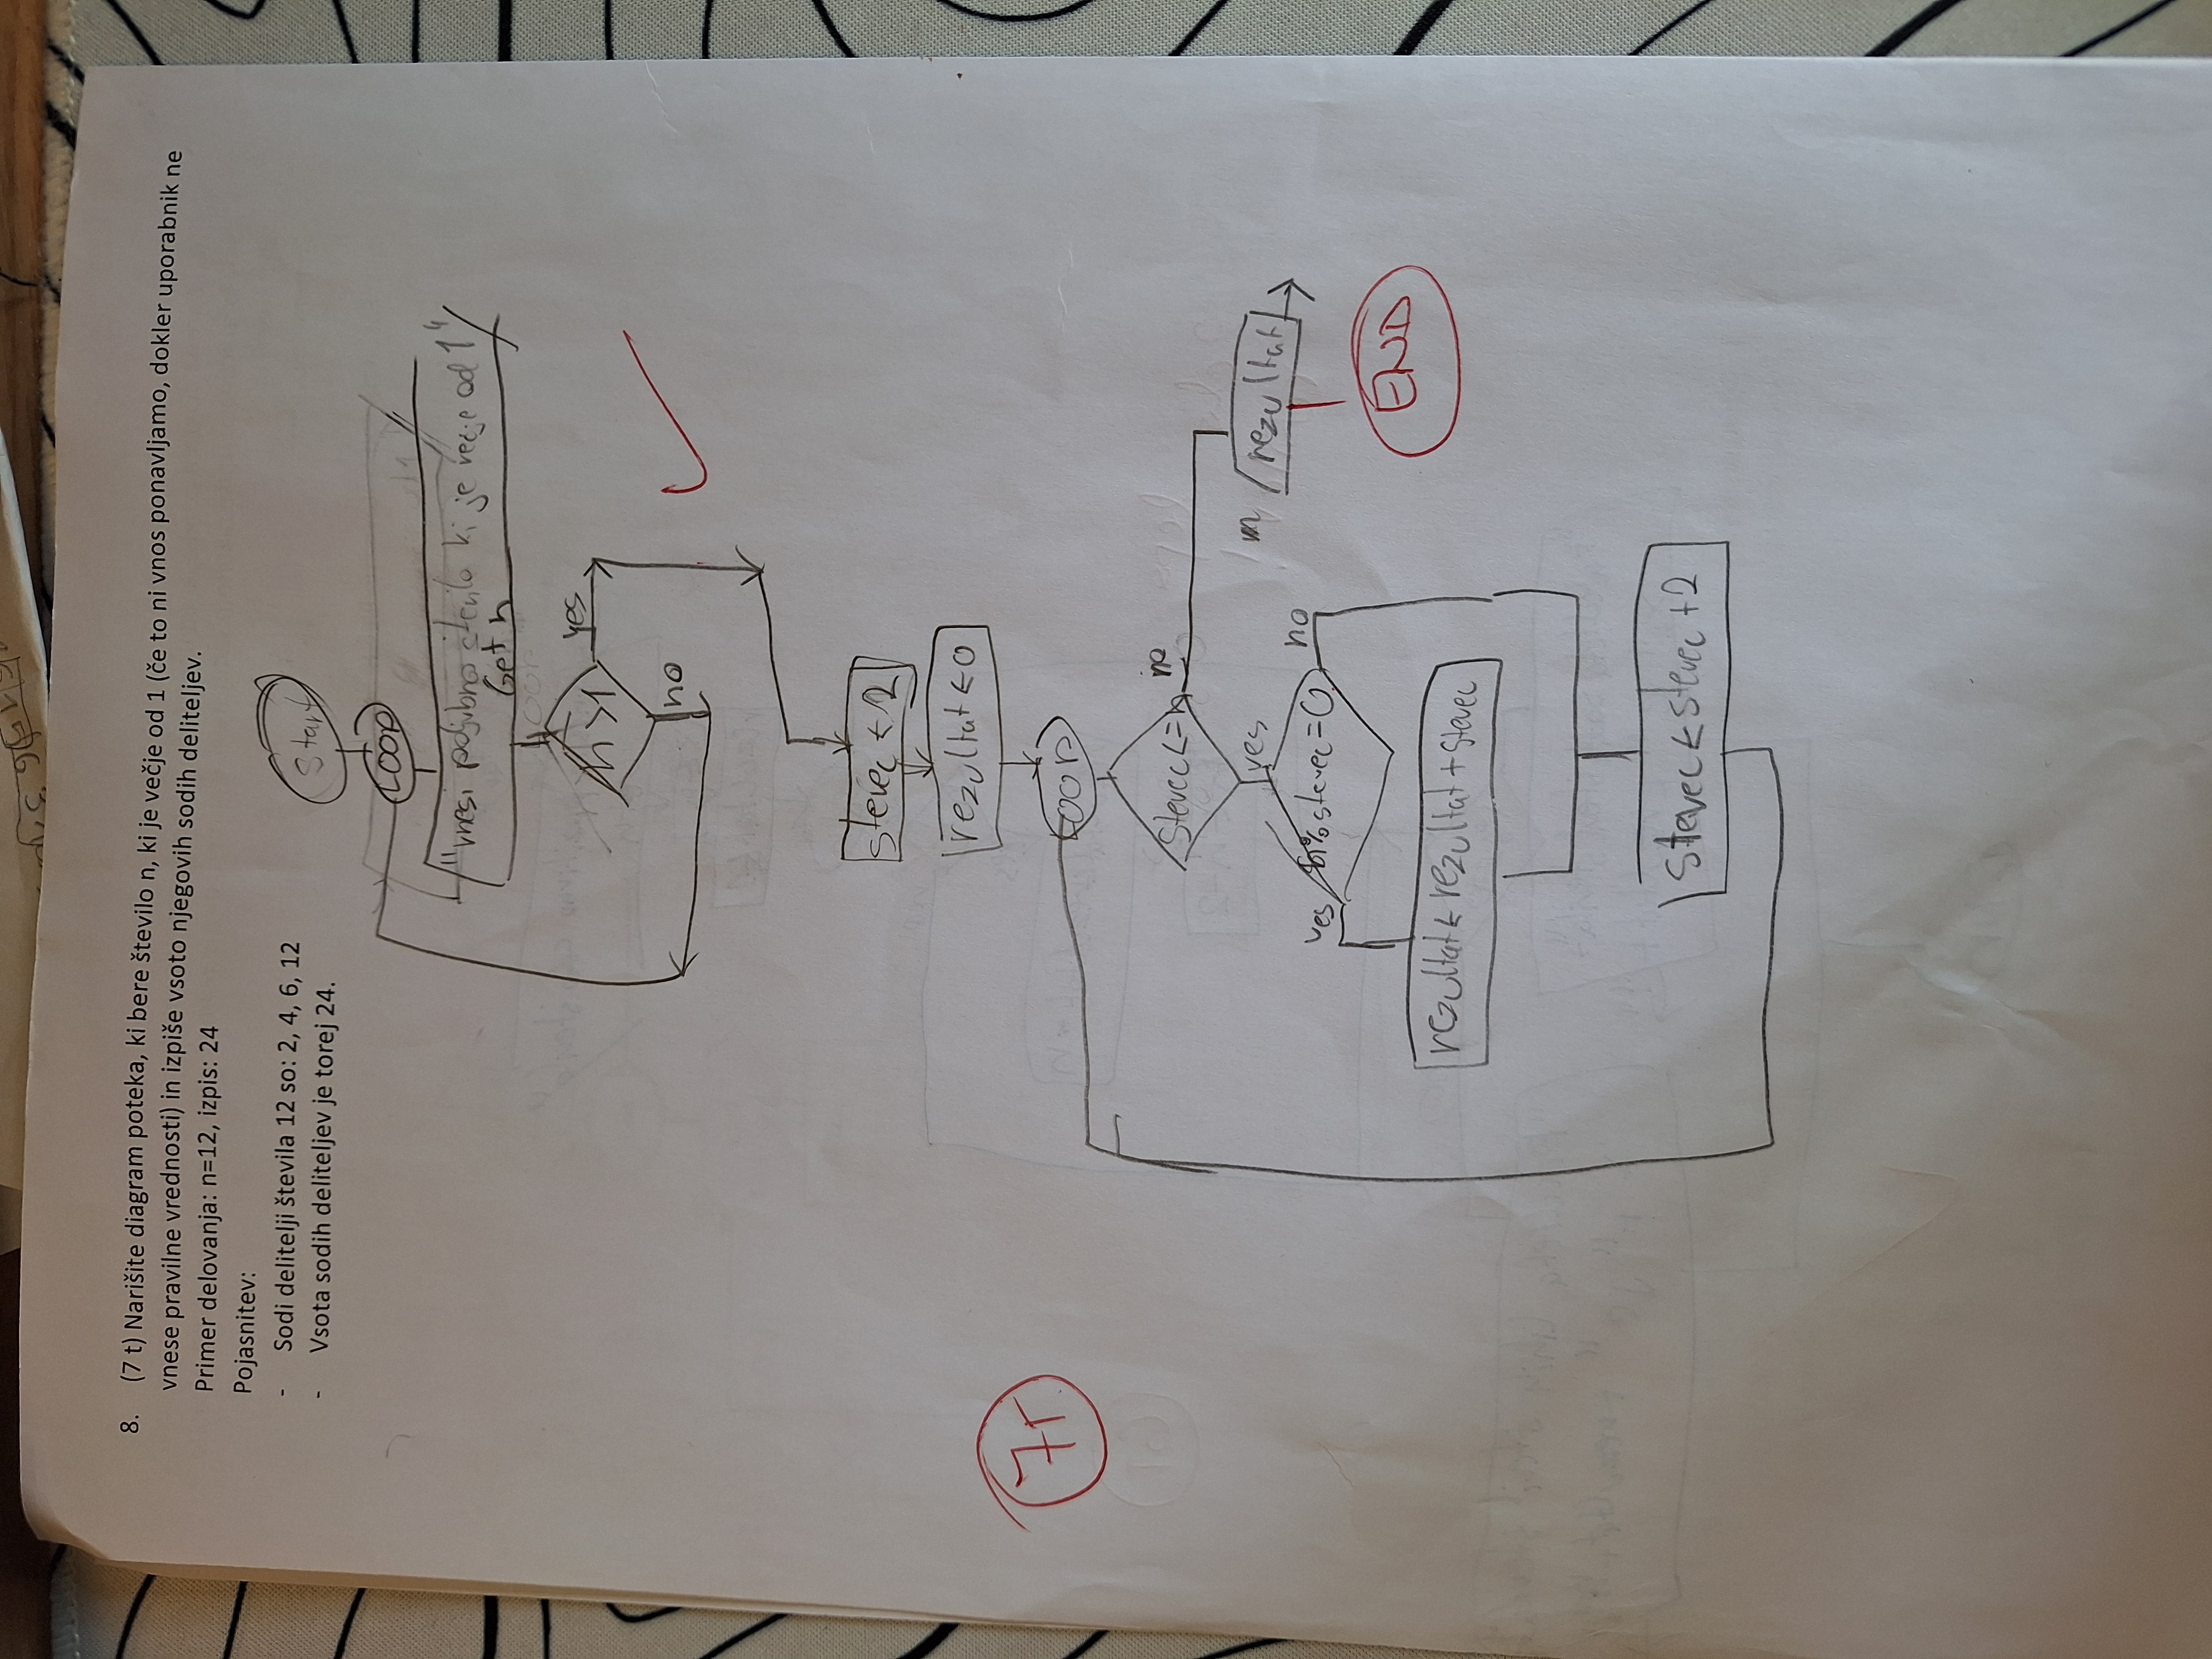 8. (7 t) Narišite diagram poteka, ki bere število n, ki je večje od 1 (če to ni vnos ponavljamo, dokler uporabnik ne
vnese pravilne vrednosti) in izpiše vsoto njegovih sodih deliteljev.
Primer delovanja: n=12, izpis: 24
Pojasnitev:
- Sodi delitelji števila 12 so: 2, 4, 6, 12
- Vsota sodih deliteljev je torej 24.
Start
LOOP
"vnesi poljubno število ki je večje od 1"
Get n
n>1
yes
no
stevec ← 2
rezultat ← 0
LOOP
stevec <= n
no
rezultat
yes
END
n%stevec = 0
yes
no
rezultat ← rezultat + stevec
stevec ← stevec + 2
7T